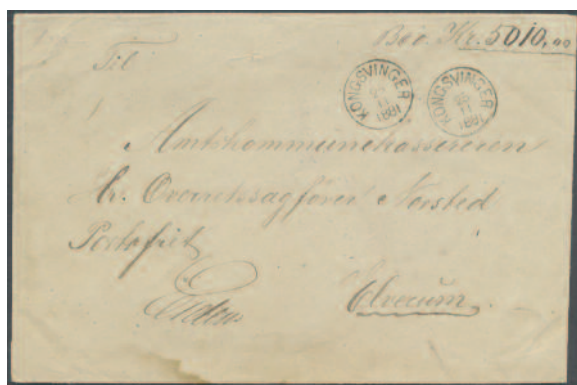 Beb. Kr. 5010,00
Til
KONGSVINGER 11 1881
KONGSVINGER 25 11 1881
Amtskommunekassereren
Hr. Overretssagfører Nersted
Portofrit
Elverum